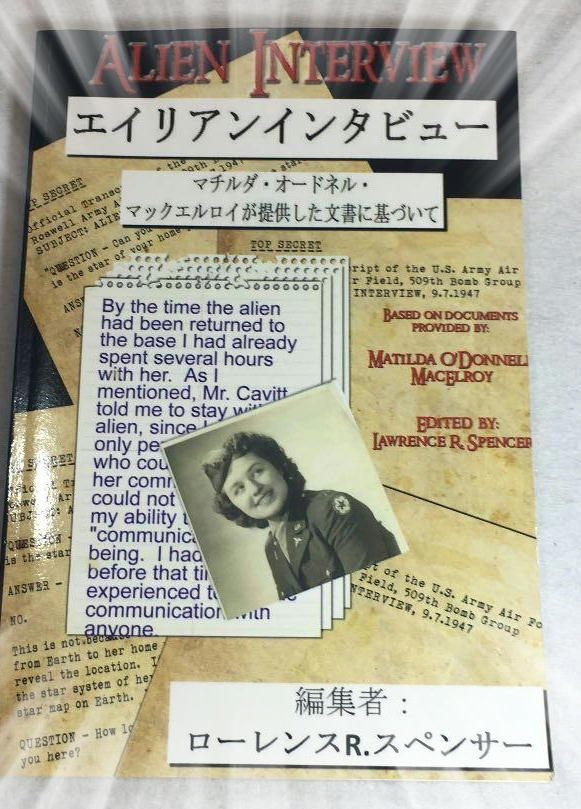 ALIEN INTERVIEW
エイリアンインタビュー
マチルダ・オードネル・
マックエルロイが提供した文書に基づいて
TOP SECRET
Official Transc
Roswell Army A
SUBJECT: ALIE
"QUESTION - Can you
is the star of your home
TOP SECRET
ript of the U.S. Army Air
r Field, 509th Bomb Group
INTERVIEW, 9.7.1947
BASED ON DOCUMENTS
PROVIDED BY:
MATILDA O'DONNELL
MACELROY
EDITED BY:
LAWRENCE R. SPENCER
By the time the alien
had been returned to
the base I had already
spent several hours
with her. As I
mentioned, Mr. Cavitt
told me to stay with
alien, since I
only pe
who cou
her comm
could not
my ability t
"communica
being. I had
before that tim
experienced te
communication with
anyone.
ANSWER -
NO.
This is not because
from Earth to her home
reveal the location. I
the star system of her
star map on Earth.
QUESTION - How lo
you here?
pt of the U.S. Army Air Fo
Field, 509th Bomb Group
NTERVIEW, 9.7.1947
編集者：
ローレンスR.スペンサー